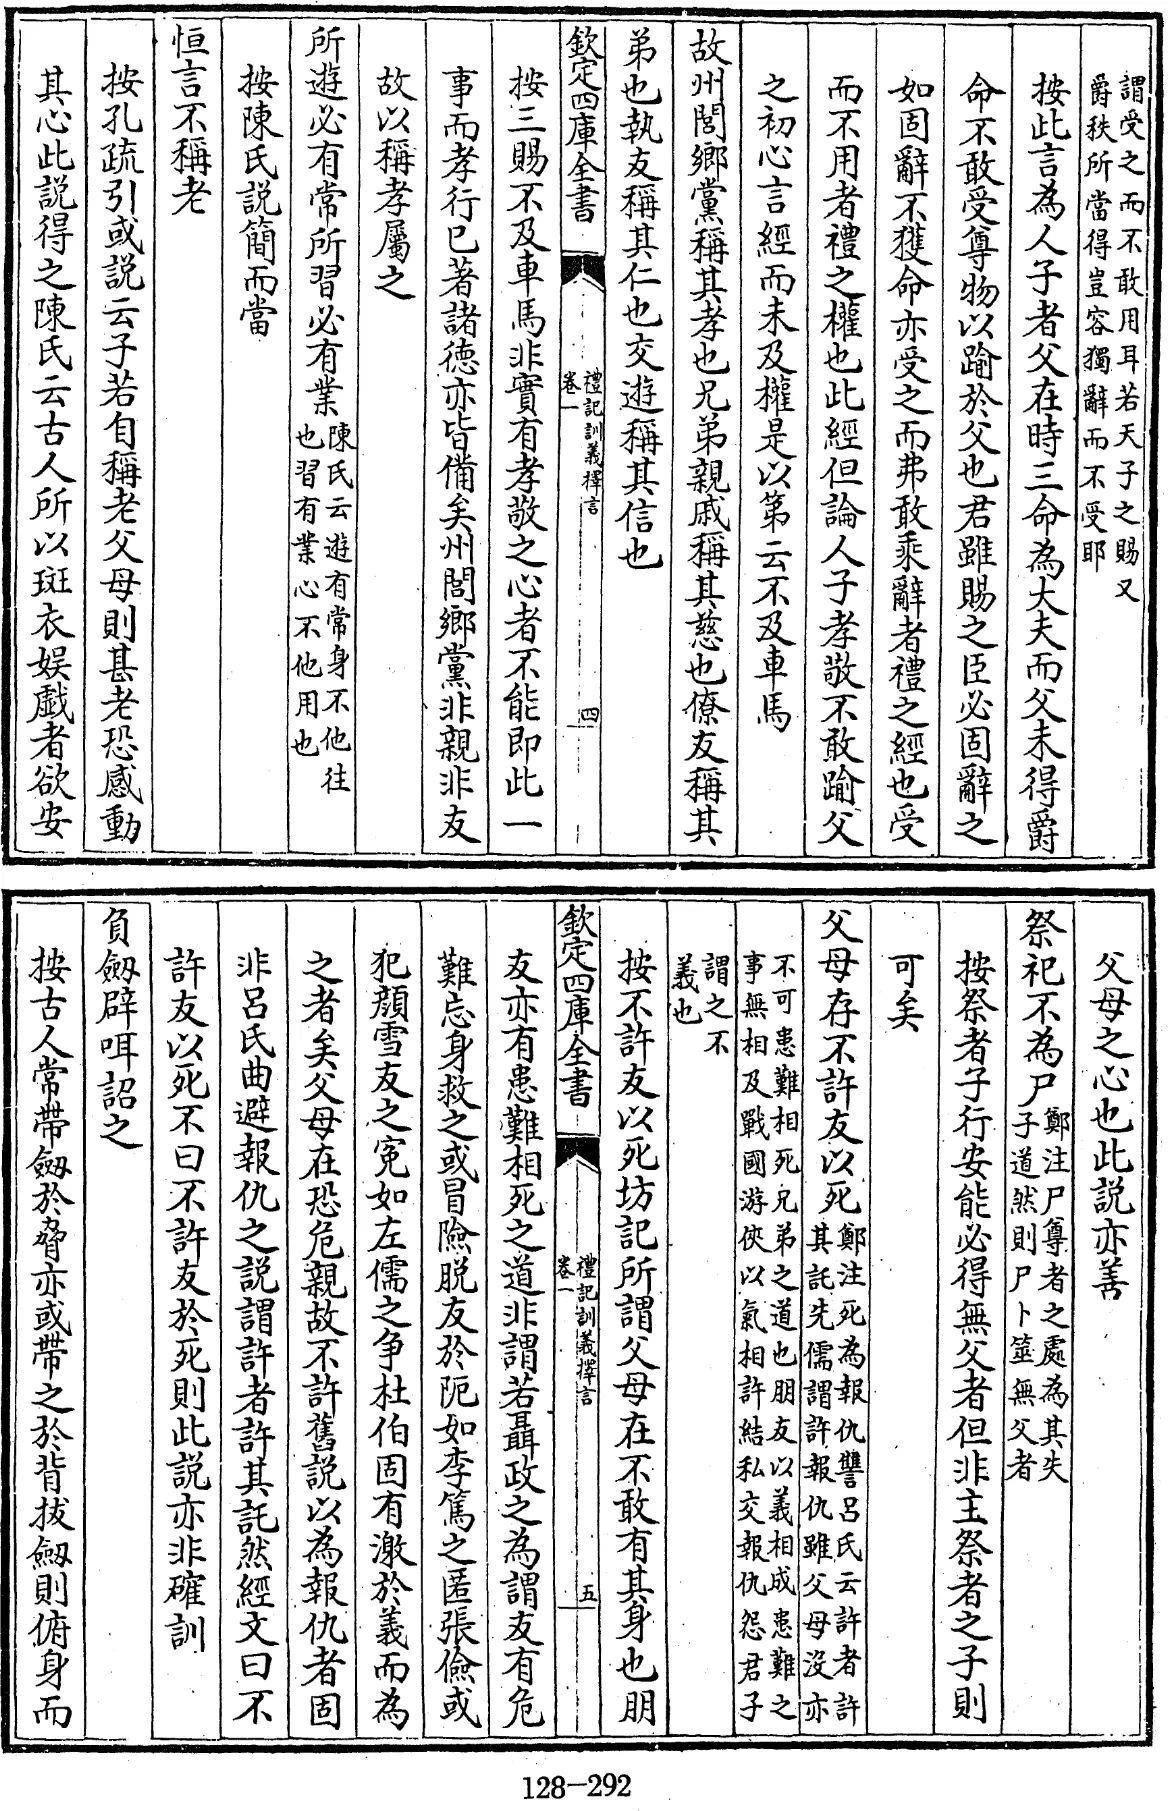 謂受之而不敢用耳若天子之賜又
爵秩所當得豈容獨辭而不受耶
按此言為人子者父在時三命為大夫而父未得爵
命不敢受尊物以踰於父也君雖賜之臣必固辭之
如固辭不獲命亦受之而弗敢乘辭者禮之經也受
而不用者禮之權也此經但論人子孝敬不敢踰父
之初心言經而未及權是以第云不及車馬
故州閭鄉黨稱其孝也兄弟親戚稱其慈也僚友稱其
弟也執友稱其仁也交遊稱其信也
欽定四庫全書
禮記訓義擇言
卷一
四
按三賜不及車馬非實有孝敬之心者不能即此一
事而孝行已著諸德亦皆備矣州閭鄉黨非親非友
故以稱孝屬之
所遊必有常所習必有業
陳氏云遊有常身不他往
也習有業心不他用也
按陳氏說簡而當
恒言不稱老
按孔疏引或說云子若自稱老父母則甚老恐感動
其心此說得之陳氏云古人所以斑衣娛戲者欲安
父母之心也此説亦善
祭祀不為尸
鄭注尸尊者之處為其失
子道然則尸卜筮無父者
按祭者子行安能必得無父者但非主祭者之子則
可矣
父母存不許友以死
鄭注死為報仇讐呂氏云許者許
其託先儒謂許報仇雖父母沒亦
不可患難相死兄弟之道也朋友以義相成患難之
事無相及戰國游俠以氣相許結私交報仇怨君子
謂之不
義也
按不許友以死坊記所謂父母在不敢有其身也朋
欽定四庫全書
禮記訓義擇言
卷一
五
友亦有患難相死之道非謂若聶政之為謂友有危
難忘身救之或冒險脱友於阨如李篤之匿張儉或
犯顏雪友之寃如左儒之争杜伯固有激於義而為
之者矣父母在恐危親故不許舊説以為報仇者固
非呂氏曲避報仇之説謂許者許其託然經文曰不
許友以死不曰不許友於死則此説亦非確訓
負劔辟咡詔之
按古人常帶劔於脅亦或帶之於背拔劔則俯身而
128-292